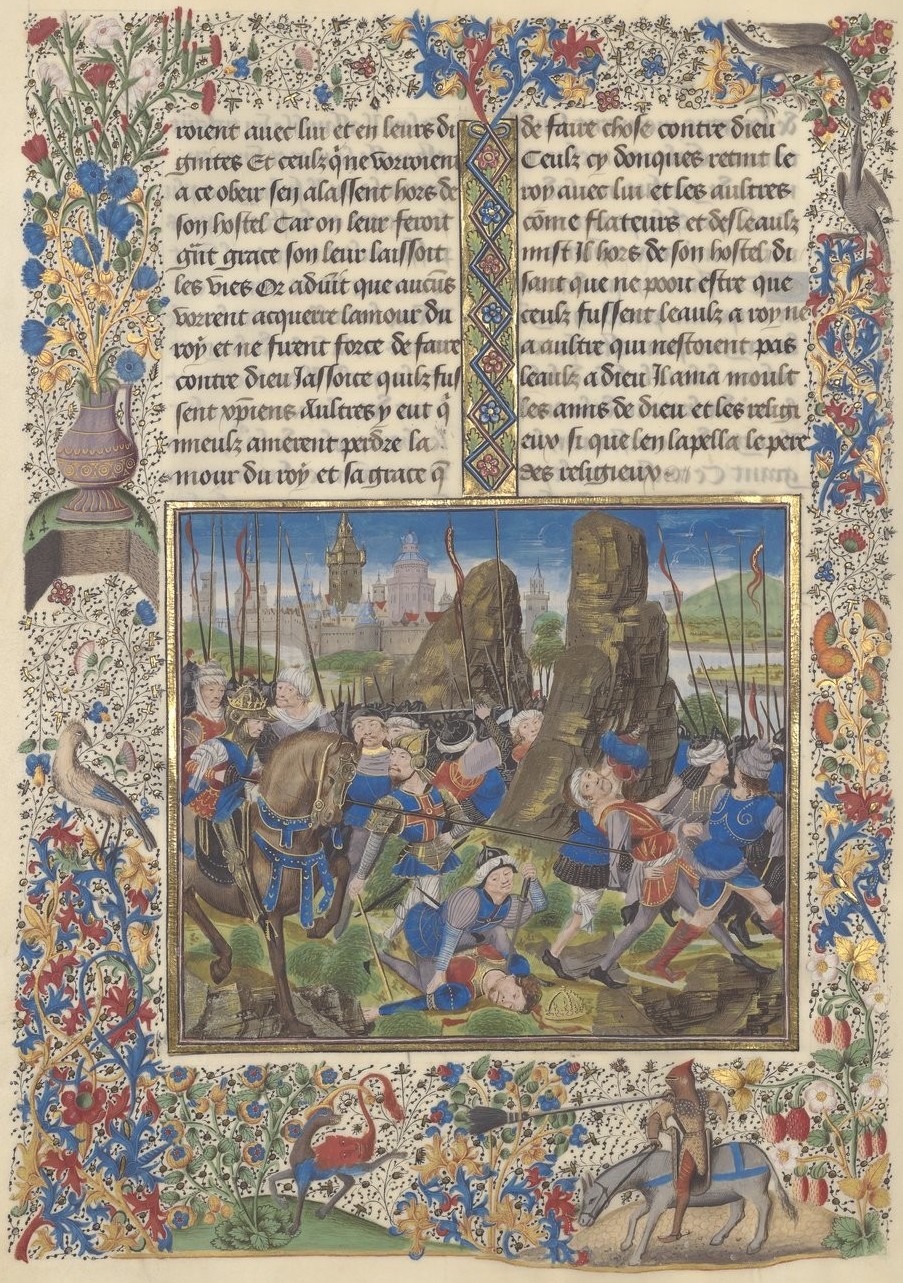 roient auec lui et en leurs di
gnites Et ceulz q̄ ne vorroient
a ce obeir sen alassent hors de
son hostel Car on leur feroit
gūt grace son leur laissoit
les vies Or aduīt que aucūs
vorrent acquerre lamour du
roy et ne firent force de faire
contre dieu Jassoice quilz fus
sent xpiens Aultres y eut q̄
mieulz amerent perdre la
mour du roy et sa grace q̄
de faire chose contre dieu
Ceulz cy donques retint le
roy auec lui et les aultres
cōme flateurs et desleaulz
mist Il hors de son hostel di
sant que ne pooit estre que
ceulz fussent leaulz a roy ne
a aultre qui nestoient pas
leaulz a dieu Il ama moult
les amis de dieu et les religi
eux si que len lapella le pere
des religieux